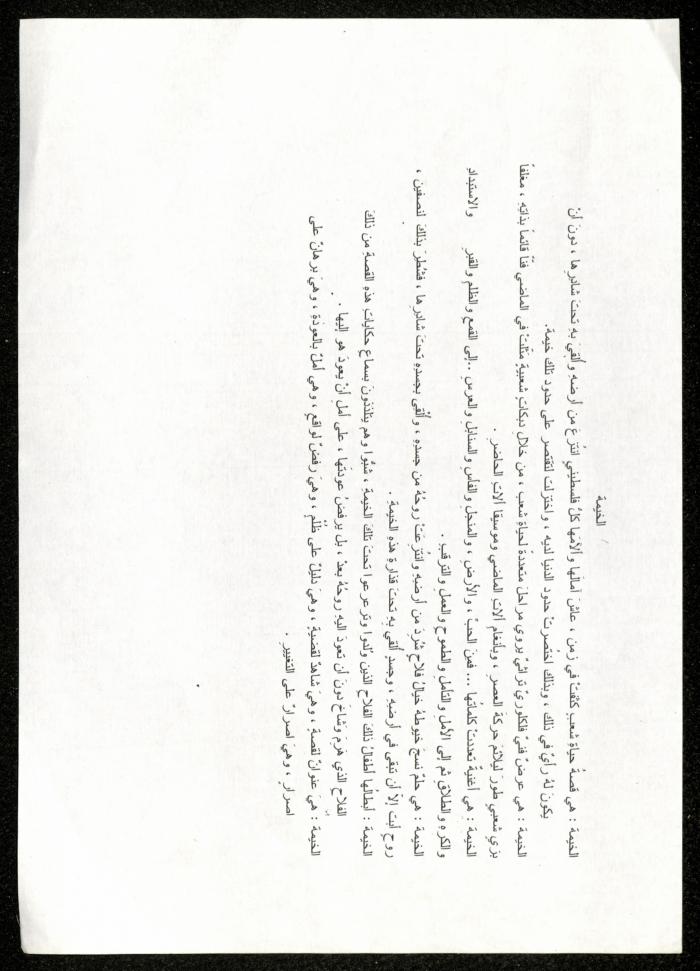 الخيمة
الخيمة : هي قصةُ حياةِ شعبٍ كُثفتْ في زمنٍ ، عاشَ آمالَها والآمَها كلُ فلسطينيٍ انتُزِعَ من أرضهِ وأُلقيَ بهِ تحتَ شادرِها ، دونَ أنْ
يكونَ لهُ رأيٌ في ذلك ، وبذلك اختُصِرتْ حدود الدنيا لديه ، واختزلت لتقتصر على حدود تلك خيمة.
الخيمة : هي عرضٌ فنيٌ فلكلوريٌ تراثيٌ يروي مراحلَ متعددة لحياةِ شعب ، من خلال دبكاتٍ شعبيةٍ مثّلتْ في الماضي فنّاً قائماً بذاتِهِ ، مغلفاً
بزيٍ شعبيٍ طُورَ ليلائمَ حركةَ العصرِ ، وبأنغام آلاتِ الماضي وموسيقا آلاتِ الحاضرِ .
الخيمة : هي أغنيةٌ تعددتْ كلماتُها ... فمنَ الحبِّ ، والأرضِ ، والمنجلِ والفأسِ والسنابلِ والعرسِ ..إلى القمعِ والظلمِ والقبرِ والاستبدادِ
والكرهِ والطلاقِ ثم إلى الأملِ والتأملِ والطموحِ والعملِ والترقبِ .
الخيمة : هي حلمٌ نسجَ خيوطهُ خيالُ فلاحٍ شُردَ من أرضبهِ وانتُزِعَتْ روحُهُ من جسدِهِ ، وأُلْقي بجسدهِ تحتَ شادرِها ، فشُطِرَ بذلكَ لنصفين ،
روحٍ أبت إلاّ أن تبقى في أرضهِ ، وجسدٍ أُلقي بهِ تحت قذارةِ هذهِ الخيمةِ .
الخيمة : أبطالُها أطفالُ ذلكَ الفلاحِ الذين وُلدوا وترعرعوا تحتَ تلكَ الخيمةِ ، شبُّوا وهم يتلذذونَ بسماعِ حكاياتِ هذهِ القصةِ من ذلكَ
الفلاحِ الذي هَرِمَ وشاخَ دونَ أن تعودَ اليهِ روحُهُ بعدُ ، بل يرفضُ عودتَها ، على أملِ أنْ يعودَ هو إليها .
الخيمة : هيَ عنوانٌ لقصةٍ ، وهيَ شاهدٌ لقضيةٍ ، وهيَ دليلٌ على ظُلْمٍ ، وهيَ رفضٌ لواقعٍ ، وهيَ أملٌ بالعودَةِ ، وهيَ برهانٌ على
اصرارٍ ، وهيَ اصرارٌ على التغييرِ .